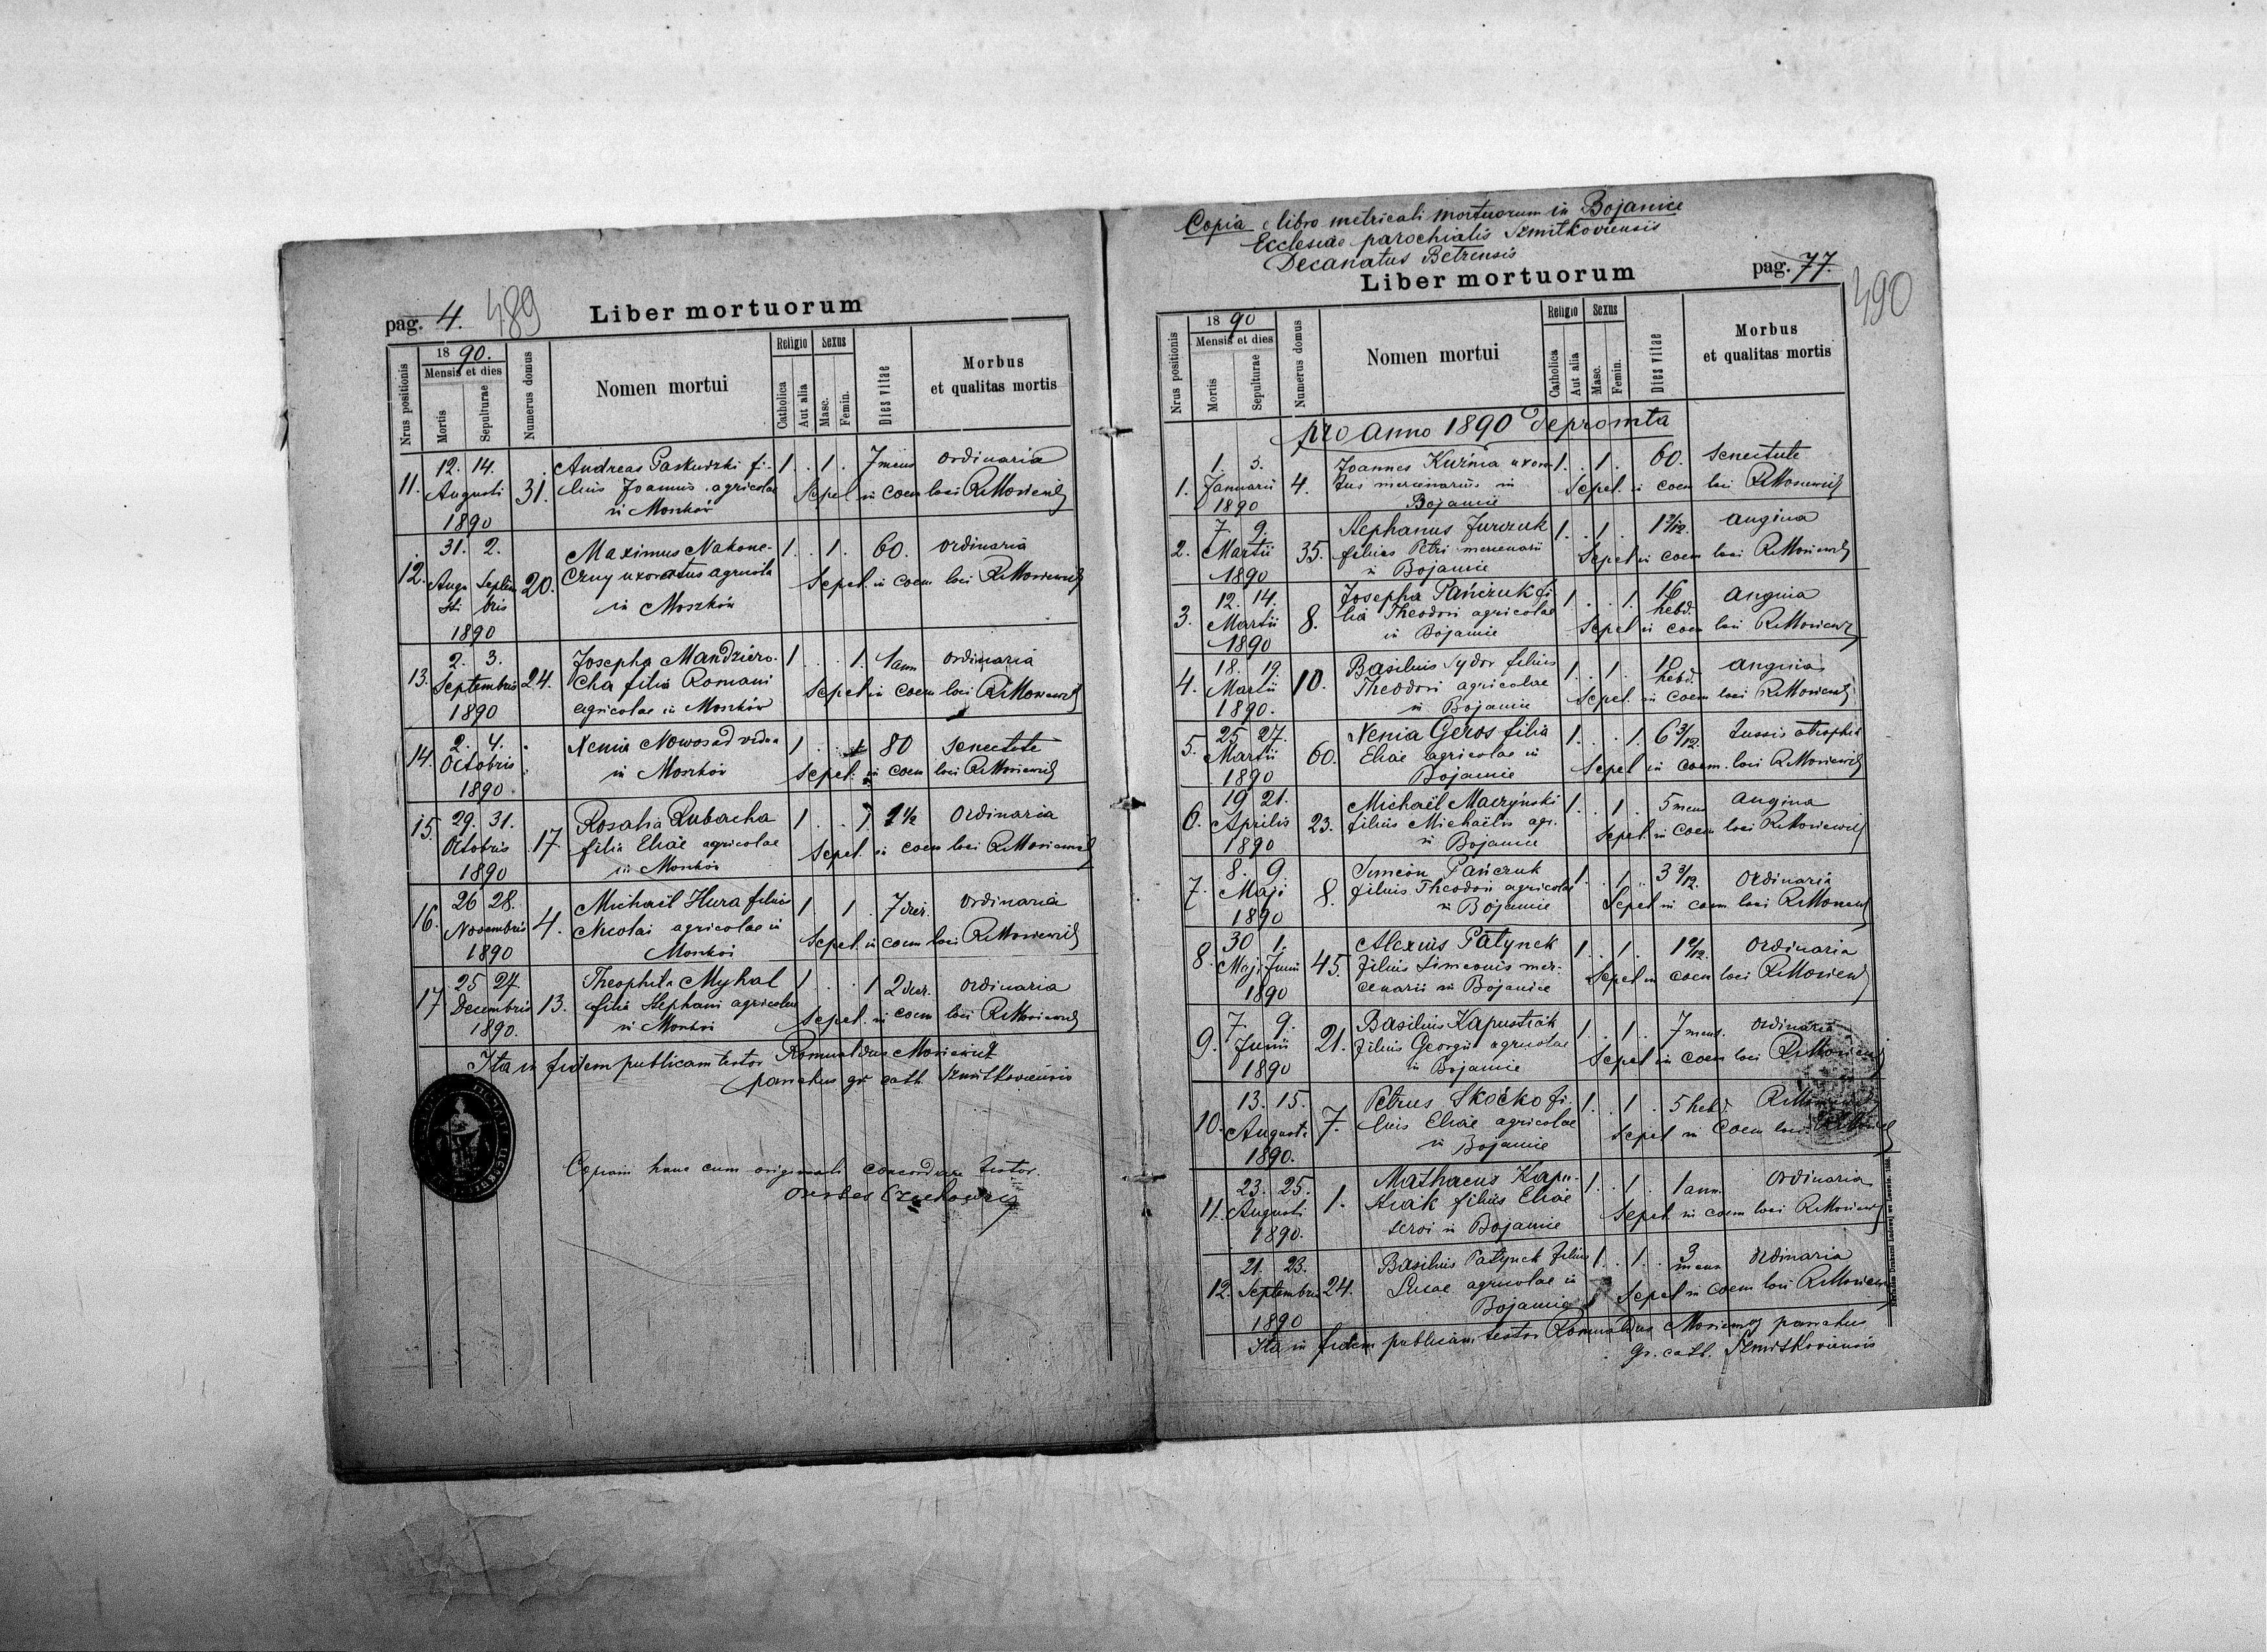 pag. 4. 489
Liber mortuorum
Nrus positionis
1890.
Mensis et dies
Mortis
Sepulturae
Numerus domus
Nomen mortui
Religio
Catholica
Aut alia
Sexus
Masc.
Femin.
Dies vitae
Morbus
et qualitas mortis
12. 14. Andreas Paskudzki fi- 1 . 1 . 7 mens ordinaria
11. Augusti 31. lius Joannis agricolae Sepel. in coem loci
1890 in Moszków
31. 2. Maximus Nakone- 1 . 1 . 60. ordinaria
12. Augu Septem 20. czny uxoratus agricola Sepel. in coem loci
sti bris in Moszków
1890
2. 3. Josepha Mandziero- 1 . . 1. 1 ann ordinaria
13. Septembris 24. cha filia Romani Sepel in coem loci
1890 agricolae in Moszków
2. 4. Xenia Nowosad vidua 1 . . 1 80 senectute
14. Octobris in Moszków Sepel. in coem loci
1890.
29. 31. Rosalia Rubacha 1 . . 1. 1 1/2 ordinaria
15. Octobris 17. filia Eliae agricolae Sepel. in coem loci
1890 in Moszków
26 28. Michaël Hura filius 1. 1 . 7 dier. ordinaria
16. Novembris 4. Nicolai agricolae in Sepel. in coem loci
1890 Moszków
25 27 Theophila Myhal 1 . . 1 2 dier. ordinaria
17 Decembris 13. filia Stephani agricolae Sepel. in coem loci
1890. in Moszków
Ita in fidem publicam testor Romualdus
parochus gr. cath. Szmitkoviensis
Copiam hanc cum originali concordare testor.
Copia e libro metricali mortuorum in Bojanice
Ecclesiae parochialis Szmitkoviensis
Decanatus Betzensis
Liber mortuorum
pag. 77. 490
Nrus positionis
1890
Mensis et dies
Mortis
Sepulturae
Numerus domus
Nomen mortui
Religio
Catholica
Aut alia
Sexus
Masc.
Femin.
Dies vitae
Morbus
et qualitas mortis
pro anno 1890 depromta
1. 3. Joannes Kuźma uxora- 1. . 1. 60. senectute
1. Januarii 4. tus mercenarius in Sepel. in coem loci
1890 Bojanice
7. 9. Stephanus Jurczuk 1. . 1. angina
2. Martii 35. filius Petri mercenarii Sepel in coem loci
1890 in Bojanice
12. 14. Josepha Pańczuk fi- 1 . . 1. 16 angina
3. Martii 8. lia Theodori agricolae hebd. Sepel in coem loci
1890 in Bojanice
18. 19. Basilius Sydor filius 1. . 1. 10 angina
4. Martii 10. Theodori agricolae hebd. Sepel. in coem loci
1890. in Bojanice
25 27. Xenia Geros filia 1. . . 1. 6 3/12. tussis
5. Martii 60. Eliae agricolae in Sepel in coem. loci
1890 Bojanice
19 21. Michaël Maczyński 1. . 1 . 5 mens angina
6. Aprilis 23. filius Michaëlis agr. Sepel. in coem loci
1890 in Bojanice
8. 9. Simeon Pańczuk 1. . 1. ordinaria
7. Maji 8. filius Theodori agricolae Sepel in coem loci
1890 in Bojanice
30 1. Alexius Patynek 1. . 1. ordinaria
8. Maji Junii 45. filius Simeonis mer- Sepel in coem loci
1890 cenarii in Bojanice
7. 9. Basilius Kapustiak 1. . 1. 7 mens. ordinaria
9. Junii 21. filius Georgii agricolae Sepel in coem loci
1890 in Bojanice
13. 15. Petrus Skoćko fi- 1. . 1 . 5 hebd.
10. Augusti 7. lius Eliae agricolae Sepel in coem loci
1890. in Bojanice
23. 25. Mathaeus Kapu- 1. . 1. 1 ann. ordinaria
11. Augusti 1. stiak filius Eliae Sepel in coem loci
1890. in Bojanice
21. 23. Basilius Patynek filius 1. . 1. . 3 ordinaria
12. Septembris 24. Lucae agricolae in mens Sepel in coem loci
1890 Bojanice
Ita in fidem publicam testor Romualdus parochus
gr. cath. Szmitkoviensis